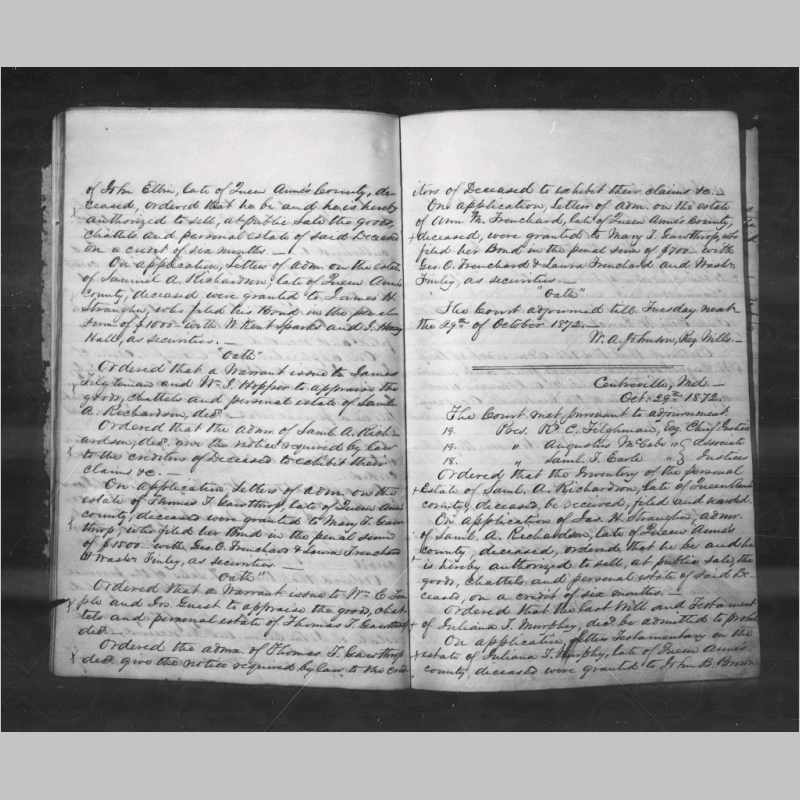 of John Elbin, late of Queen Anne's County, de-
ceased, ordered that he be and he is hereby
authorized to sell, at public sale the goods,
chattels and personal estate of said Deceased
on a credit of six months. —
On application, Letters of adm. on the estate
of Samuel A. Richardson, late of Queen Anne's
county, deceased were granted to James H.
Straughn, who filed his Bond in the penal
sum of $1000 with W. Kent Sparks and J. Henry
Hall, as securities. —
"Oath"
Ordered that a Warrant issue to James
Tilghman and Wm. J. Hopper to appraise the
goods, chattels and personal estate of Saml.
A. Richardson, decd. —
Ordered that the admr. of Saml. A. Rich-
ardson, decd. give the notice required by law
to the creditors of Deceased to exhibit their
claims &c. —
On application, Letters of adm. on the
estate of Thomas T. Gawthrop, late of Queen Anne's
county, deceased were granted to Mary T. Gaw-
throp, who filed her Bond in the penal sum
of $1500 with Geo. O. Trenchard & Laura Trenchard
& Washn. Finley, as securities. —
"Oath"
Ordered that a Warrant issue to Wm. E. Tem-
ple and Jno. Guest to appraise the goods, chat-
tels and personal estate of Thomas T. Gawthrop
decd. —
Ordered the admx. of Thomas T. Gawthrop
decd. give the notice required by law to the cred-
itors of Deceased to exhibit their claims &c. —
On application, Letters of adm. on the estate
of Ann M. Trenchard, late of Queen Anne's County,
deceased, were granted to Mary T. Gawthrop, who
filed her Bond in the penal sum of $700 with
Geo. O. Trenchard & Laura Trenchard and Washn.
Finley, as securities. —
"Oath"
The Court adjourned till Tuesday next
the 29th of October 1872. —
W. A. Johnson, Reg. Wills. —
Centreville, Md. —
Oct. 29th 1872.
The Court met, pursuant to adjournment
19. Pres. R. C. Tilghman, Esq. Chief Justice
19. " Augustus McCabe " } Associate
18. " Saml. T. Earle " } Justices
Ordered that the Inventory of the personal
Estate of Saml. A. Richardson, late of Queen Anne's
county, deceased, be received, filed and recorded.
On application of Jas. H. Straughn, admr.
of Saml. A. Richardson, late of Queen Anne's
county, deceased, ordered that he be and he
is hereby authorized to sell, at public sale, the
goods, chattels and personal estate of said De-
ceased, on a credit of six months. —
Ordered that the last Will and Testament
of Juliana T. Murphy, decd. be admitted to probate
On application, Letters Testamentary on the
estate of Juliana T. Murphy, late of Queen Anne's
county, deceased were granted to John B. Brown